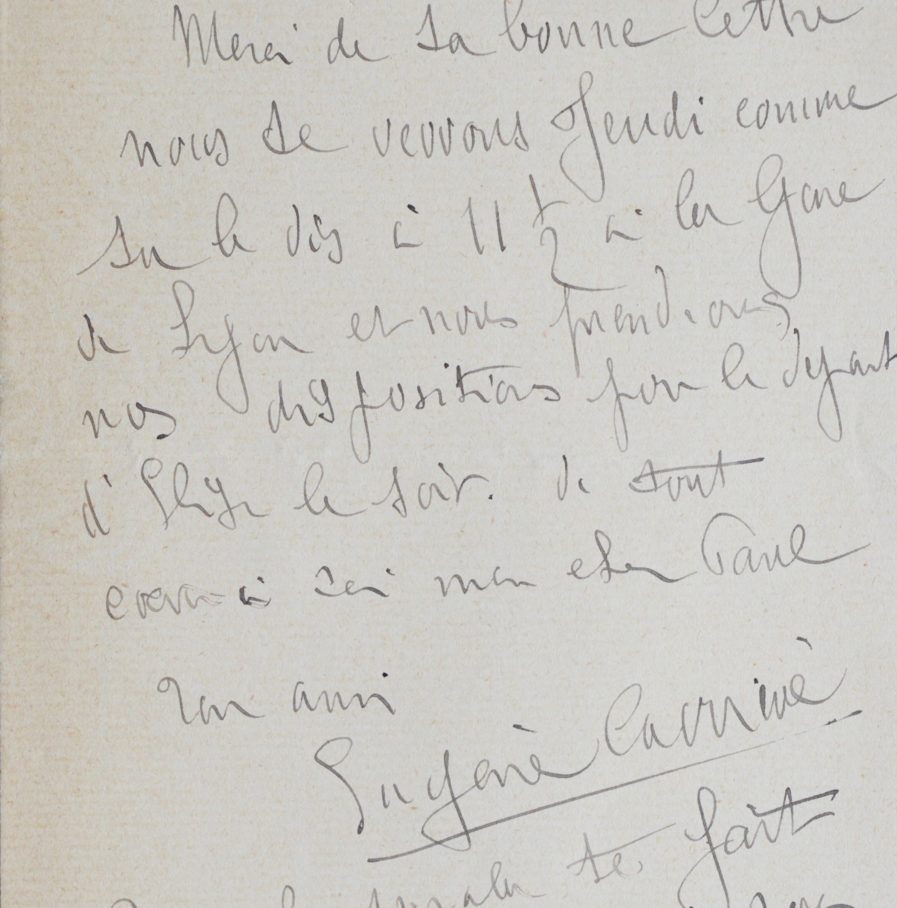 Merci de ta bonne lettre
nous te verrons Jeudi comme
tu le dis à 11 1/2 à la Gare
de Lyon et nous prendrons
nos dispositions pour le départ
d'Elise le soir. de tout
coeur à toi mon cher Paul
Ton ami
Eugène Carrière
te fait